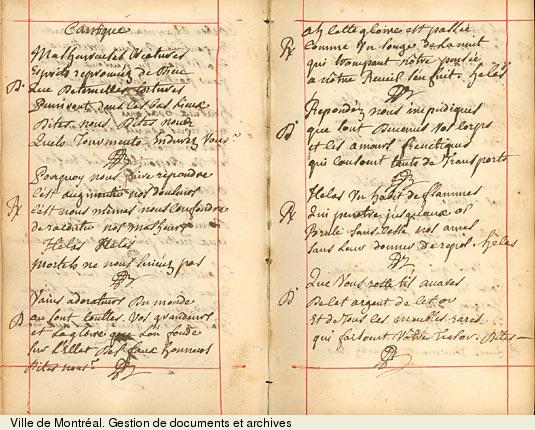 Cantique
Malheureuses Creatures
Esprits reprouvez de Dieu
D.
Que D'eternelles tortures
Punissent dans les bas lieux
Dites nous Dites nous
Quels Tourments Endurez Vous
Pourquoy nous faire repondre
C'est augmenter nos douleurs
R
C'est nous mêmes nous confondre
de raconter nos malheurs
Helas Helas
Mortels ne nous suivez pas
Vains adorateurs du monde
D
ou sont toutes Vos grandeurs
et La gloire que L'on fonde
sur L'Eclat des faux honneurs
Dites nous.
ah cette gloire est passée
R
Comme Un songe de la nuit
qui trompant nôtre pensée
a nôtre Reveil s'enfuit. helas
Repondez nous impudiques
D
que sont Devenus Vos corps
et les amours frenetiques
qui causoient tants de Transports
Helas Un habit de flammes
R
qui penetre jusqu'aux os
Brule Sans Cesse nos ames
sans Leur donner de repos. helas
Que Vous reste t'il avares
D
De cet argent de cet or
Et de Tous les meubles rares
qui faisoient Votre Tresor. Dites
Ville de Montréal. Gestion de documents et archives